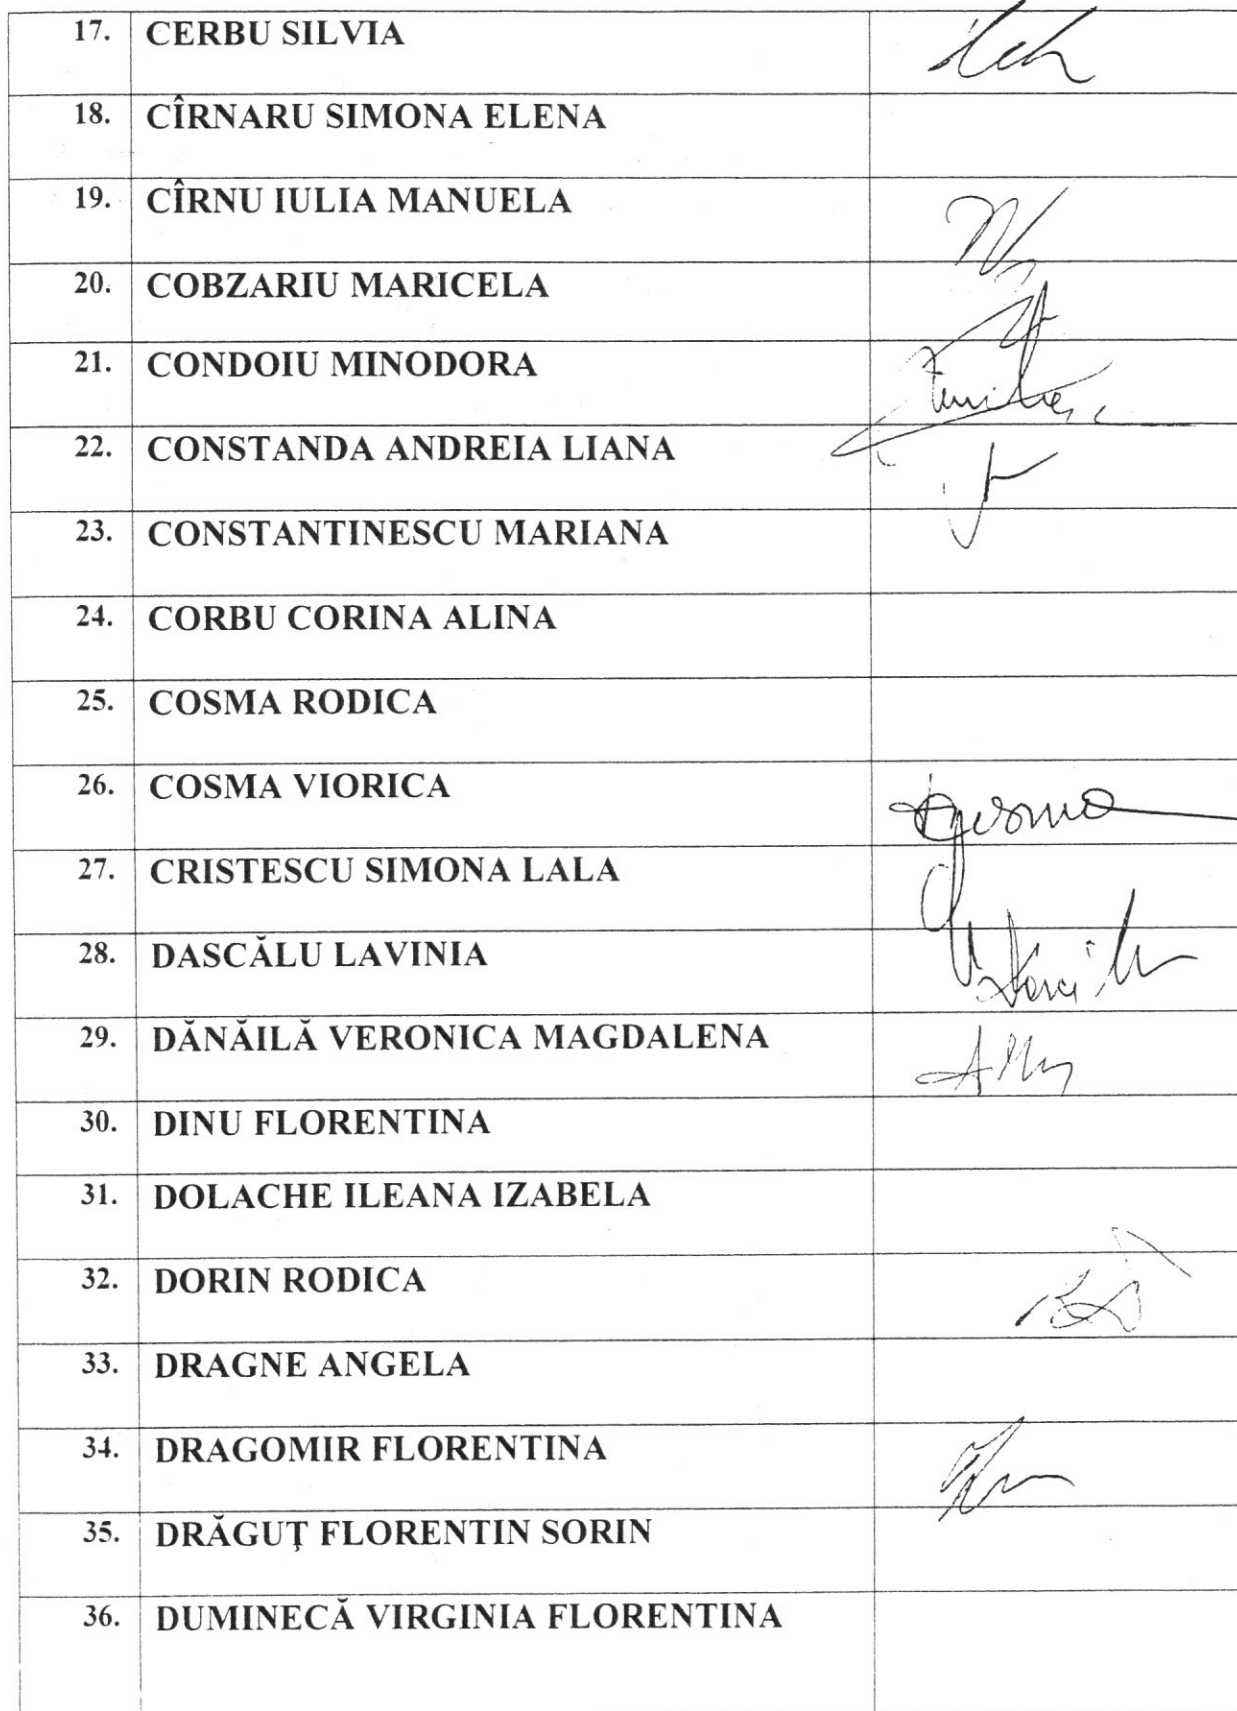 17. CERBU SILVIA
18. CÎRNARU SIMONA ELENA
19. CÎRNU IULIA MANUELA
20. COBZARIU MARICELA
21. CONDOIU MINODORA
22. CONSTANDA ANDREIA LIANA
23. CONSTANTINESCU MARIANA
24. CORBU CORINA ALINA
25. COSMA RODICA
26. COSMA VIORICA
27. CRISTESCU SIMONA LALA
28. DASCĂLU LAVINIA
29. DĂNĂILĂ VERONICA MAGDALENA
30. DINU FLORENTINA
31. DOLACHE ILEANA IZABELA
32. DORIN RODICA
33. DRAGNE ANGELA
34. DRAGOMIR FLORENTINA
35. DRĂGUŢ FLORENTIN SORIN
36. DUMINECĂ VIRGINIA FLORENTINA